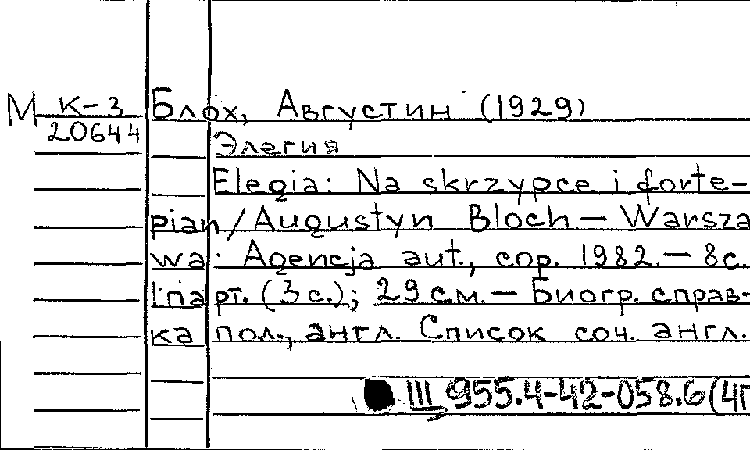 М К-3 Блох, Августин (1929)
20644
Элегия
Elegia: Na skrzypce i forte-
pian / Augustyn Bloch. — Warsza
wa: Agencja aut., cop. 1982. — 8 с.
1 парт. (3 с.); 29 см. — Биогр. справ-
ка пол., англ. Список соч. англ.
III 955.4-42-058.6(4П